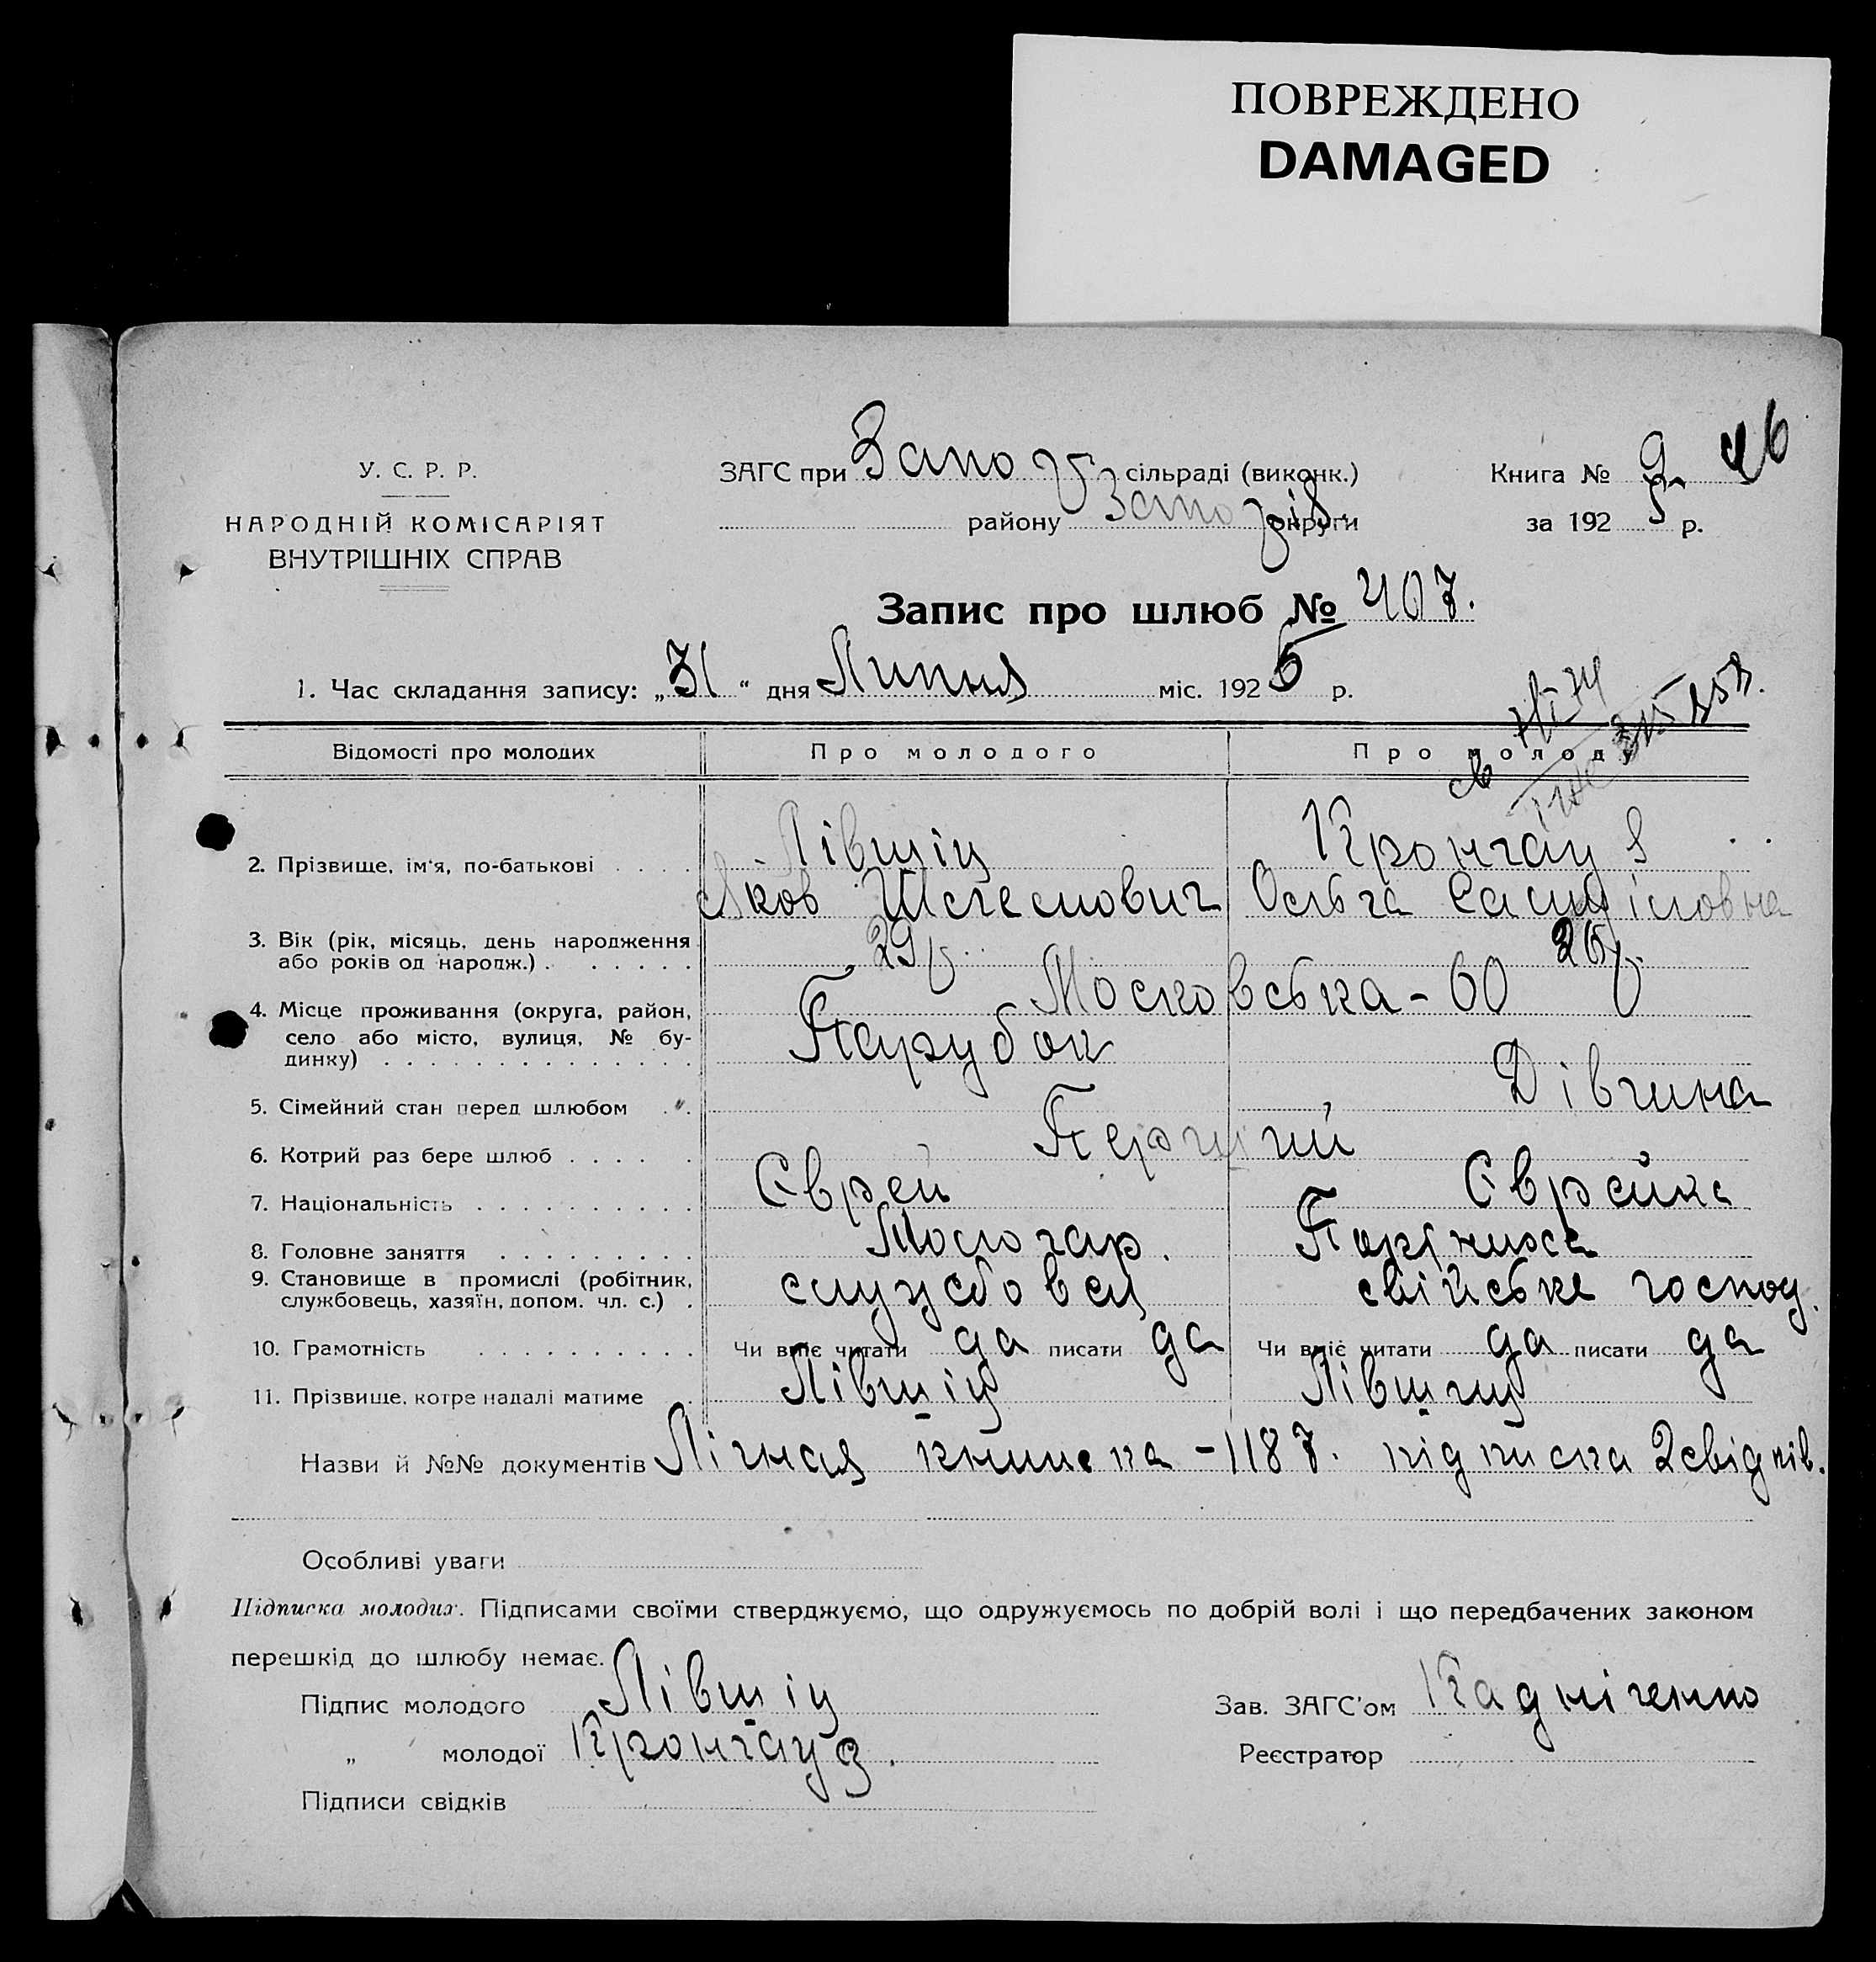 ПОВРЕЖДЕНО
DAMAGED
У. С. Р. Р.
НАРОДНІЙ КОМІСАРІЯТ
ВНУТРІШНІХ СПРАВ
ЗАГС при Запо сільраді (виконк.)
району Запо округи
Книга № 9 46
за 1925 р.
Запис про шлюб № 407.
1. Час складання запису: „31" дня Липня міс. 1925 р.
Відомості про молодих Про молодого Про молоду
2. Прізвище, ім'я, по-батькові . . . . Лівшіц Кронгауз
Яков Ольга
3. Вік (рік, місяць, день народження 29 р. 26 р.
або років од народж.) . . . . . .
4. Місце проживання (округа, район, Московська - 60
село або місто, вулиця, № бу-
динку) . . . . . . . . . . . . . Парубок
5. Сімейний стан перед шлюбом . . Дівчина
6. Котрий раз бере шлюб . . . . . Перший
7. Національність . . . . . . . . . . Єврей Єврейка
8. Головне заняття . . . . . . . . .
9. Становище в промислі (робітник, службовец свійське господ.
службовець, хазяїн, допом. чл. с.) .
10. Грамотність . . . . . . . . . . Чи вміє читати да писати да Чи вміє читати да писати да
11. Прізвище, котре надалі матиме . Лівшіц Лівшиц
Назви й №№ документів Лічная книжка - 1187. підписка 2 свідків.
Особливі уваги
Підписка молодих. Підписами своїми стверджуємо, що одружуємось по добрій волі і що передбачених законом
перешкід до шлюбу немає.
Підпис молодого Лівшіц Зав. ЗАГС'ом
„ молодої Кронгауз. Реєстратор
Підписи свідків